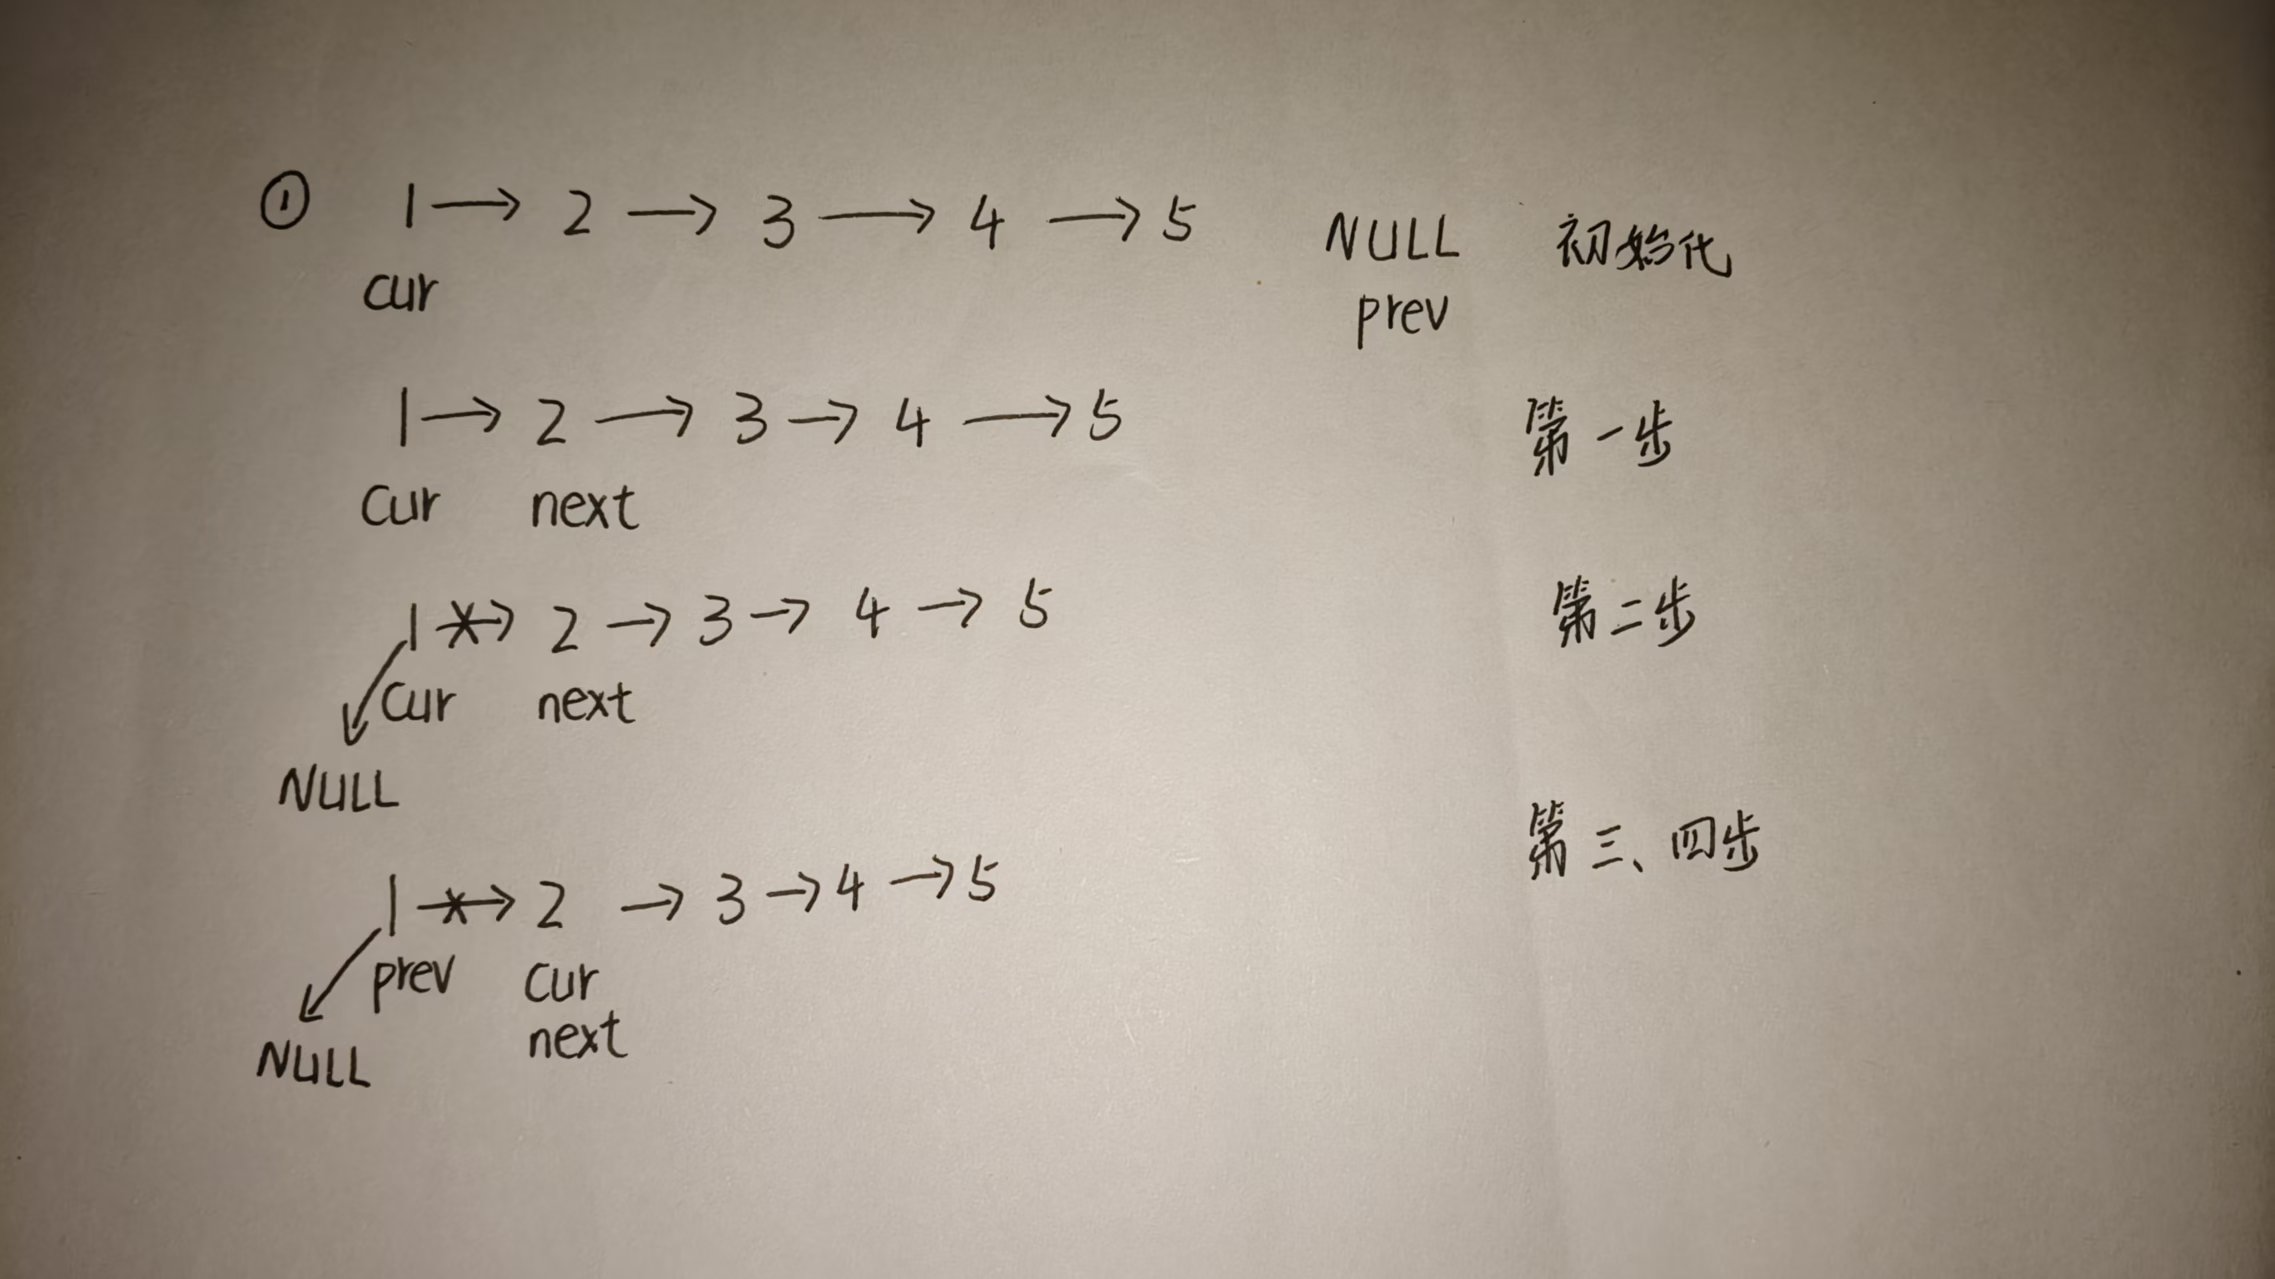 ① 1 → 2 → 3 → 4 → 5 NULL 初始化
cur prev
1 → 2 → 3 → 4 → 5 第一步
cur next
1 → 2 → 3 → 4 → 5 第二步
cur next
NULL
1 → 2 → 3 → 4 → 5 第三、四步
prev cur
next
NULL